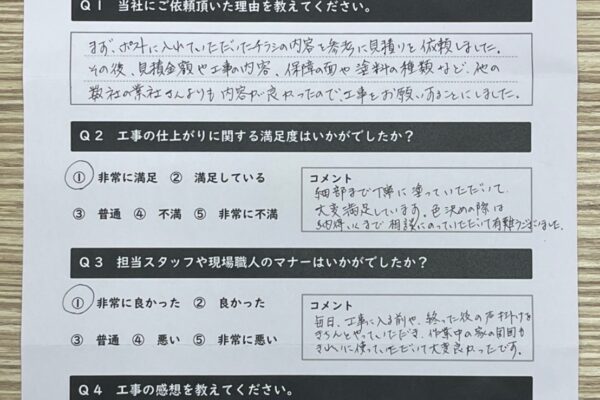 Q1 当社にご依頼頂いた理由を教えてください。
まず、ポストに入れていただいたチラシの内容を参考に見積りを依頼しました。
その後、見積金額や工事の内容、保障の面や塗料の種類など、他の
数社の業社さんよりも内容が良かったので工事をお願いすることにしました。
Q2 工事の仕上がりに関する満足度はいかがでしたか？
① 非常に満足 ② 満足している
③ 普通 ④ 不満 ⑤ 非常に不満
コメント
細部まで丁寧に塗っていただいて、
大変満足しています。色決めの際は
納得いくまで相談にのっていただいて有難うございました。
Q3 担当スタッフや現場職人のマナーはいかがでしたか？
① 非常に良かった ② 良かった
③ 普通 ④ 悪い ⑤ 非常に悪い
コメント
毎日、工事に入る前や、終った後の声掛けを
きちんとやっていただき、作業中の家の周囲も
きれいに使っていただいて大変良かったです。
Q4 工事の感想を教えてください。